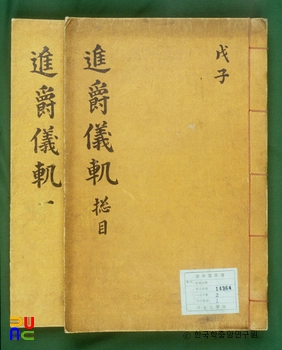 戊子
進爵儀軌 捴目
進爵儀軌 一
14364
2
한국학중앙연구원